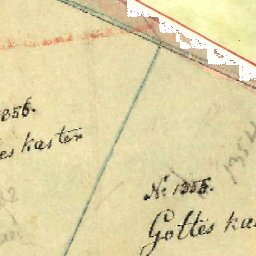 1356.
es kasten
No 1355.
Gottes kas
1354